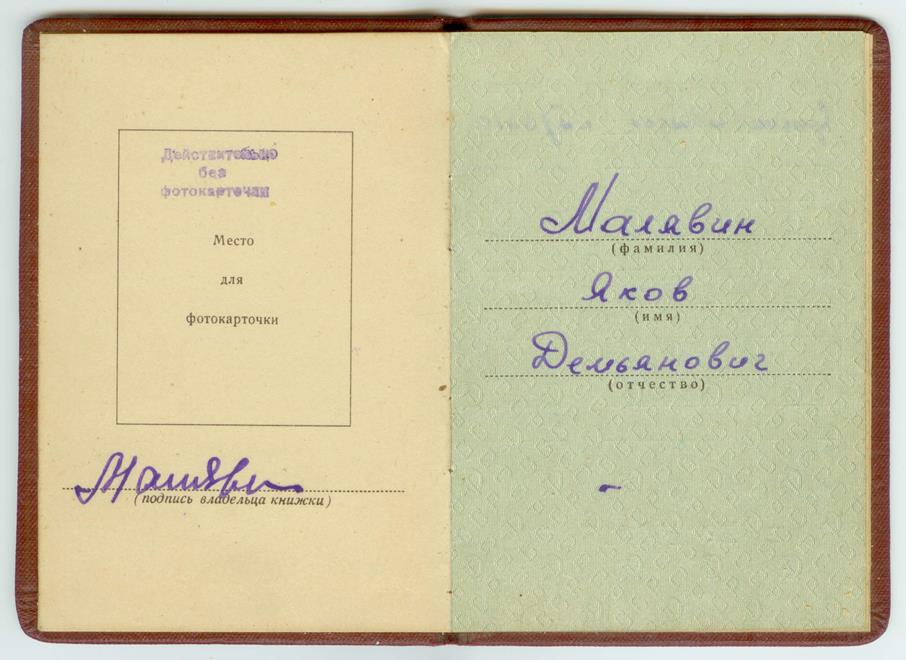 Действительно
без
фотокарточки
Место
для
фотокарточки
(подпись владельца книжки)
Малявин
(фамилия)
Яков
(имя)
Демьянович
(отчество)
-